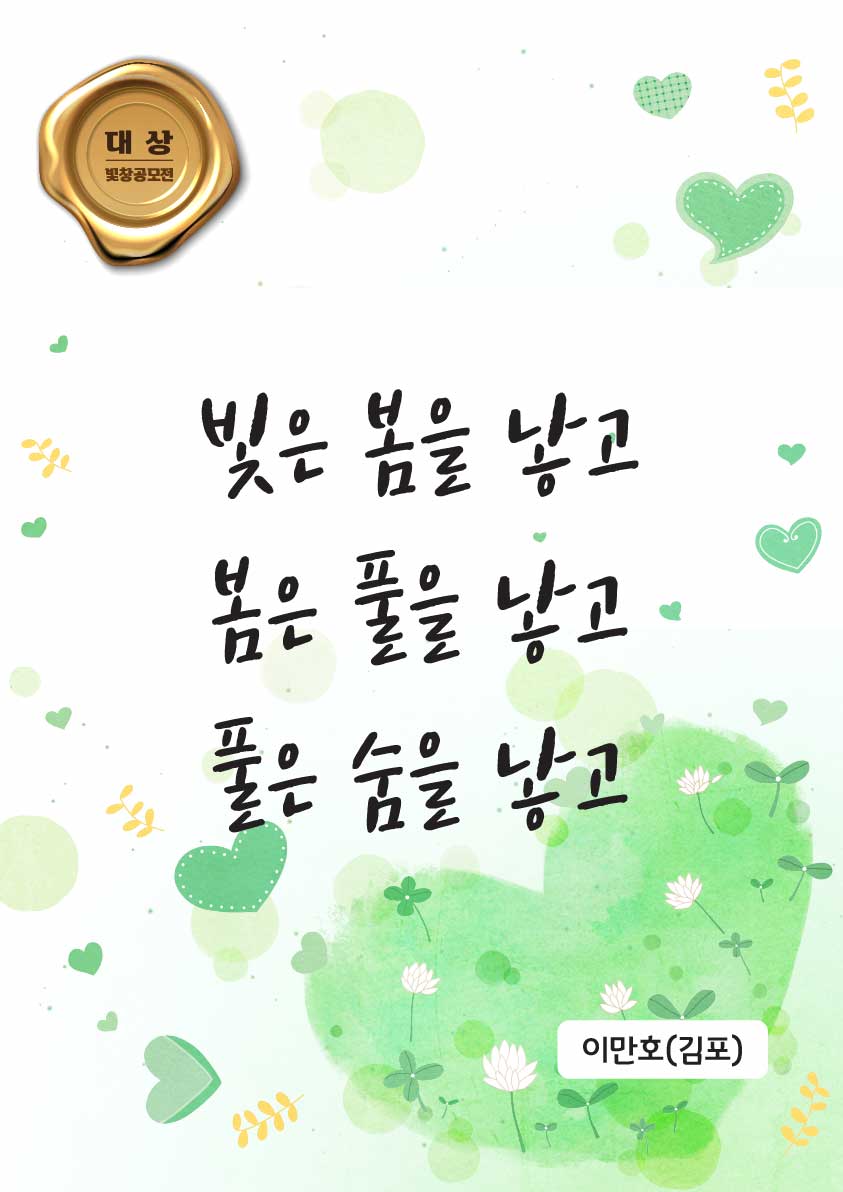 대상
빛창공모전
빛은 봄을 낳고
봄은 풀을 낳고
풀은 숨을 낳고
이만호(김포)